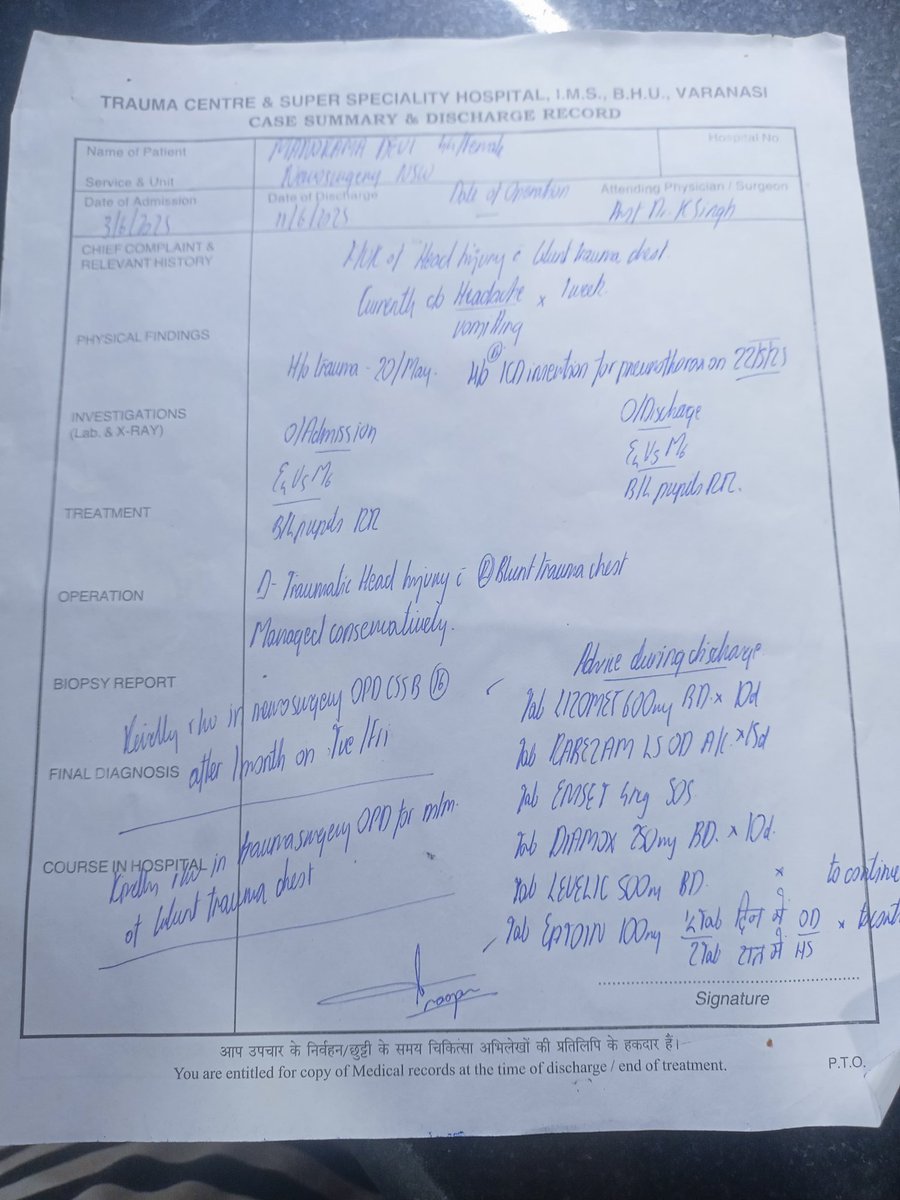 TRAUMA CENTRE & SUPER SPECIALITY HOSPITAL, I.M.S., B.H.U., VARANASI
CASE SUMMARY & DISCHARGE RECORD
Name of Patient
MANORAMA DEVI Female
Hospital No.
Service & Unit
Neurosurgery NSW
Date of Admission
3/6/2025
Date of Discharge
11/6/2025
Date of Operation
Attending Physician / Surgeon
Prof Dr. K Singh
CHIEF COMPLAINT &
RELEVANT HISTORY
of Head injury c̄ blunt trauma chest.
Currently c/o Headache x 1 week
vomitting
PHYSICAL FINDINGS
H/o trauma - 20/May. H/o ICD insertion for pneumothorax on 22/5/25
INVESTIGATIONS
(Lab. & X-RAY)
O/Admission
E4 V5 M6
B/L pupils RR
O/Discharge
E4 V5 M6
B/L pupils RR.
TREATMENT
OPERATION
Traumatic Head injury c̄ Blunt trauma chest
Managed conservatively.
BIOPSY REPORT
Kindly r/w in neurosurgery OPD CSSB 16
after 1 month on Tue/Fri
FINAL DIAGNOSIS
COURSE IN HOSPITAL
Kindly r/w in trauma surgery OPD for m/m.
of blunt trauma chest
Advice during discharge
Tab LIZOMET 600mg BD. x 10d
Tab LS OD x 15d
Tab EMSET 4mg SOS
Tab DIAMOX 250mg BD. x 10d.
Tab 500mg BD. x to continue
Tab EPTOIN 100mg दिन में OD x
2Tab रात में HS
Signature
आप उपचार के निर्वहन/छुट्टी के समय चिकित्सा अभिलेखों की प्रतिलिपि के हकदार हैं।
You are entitled for copy of Medical records at the time of discharge / end of treatment.
P.T.O.